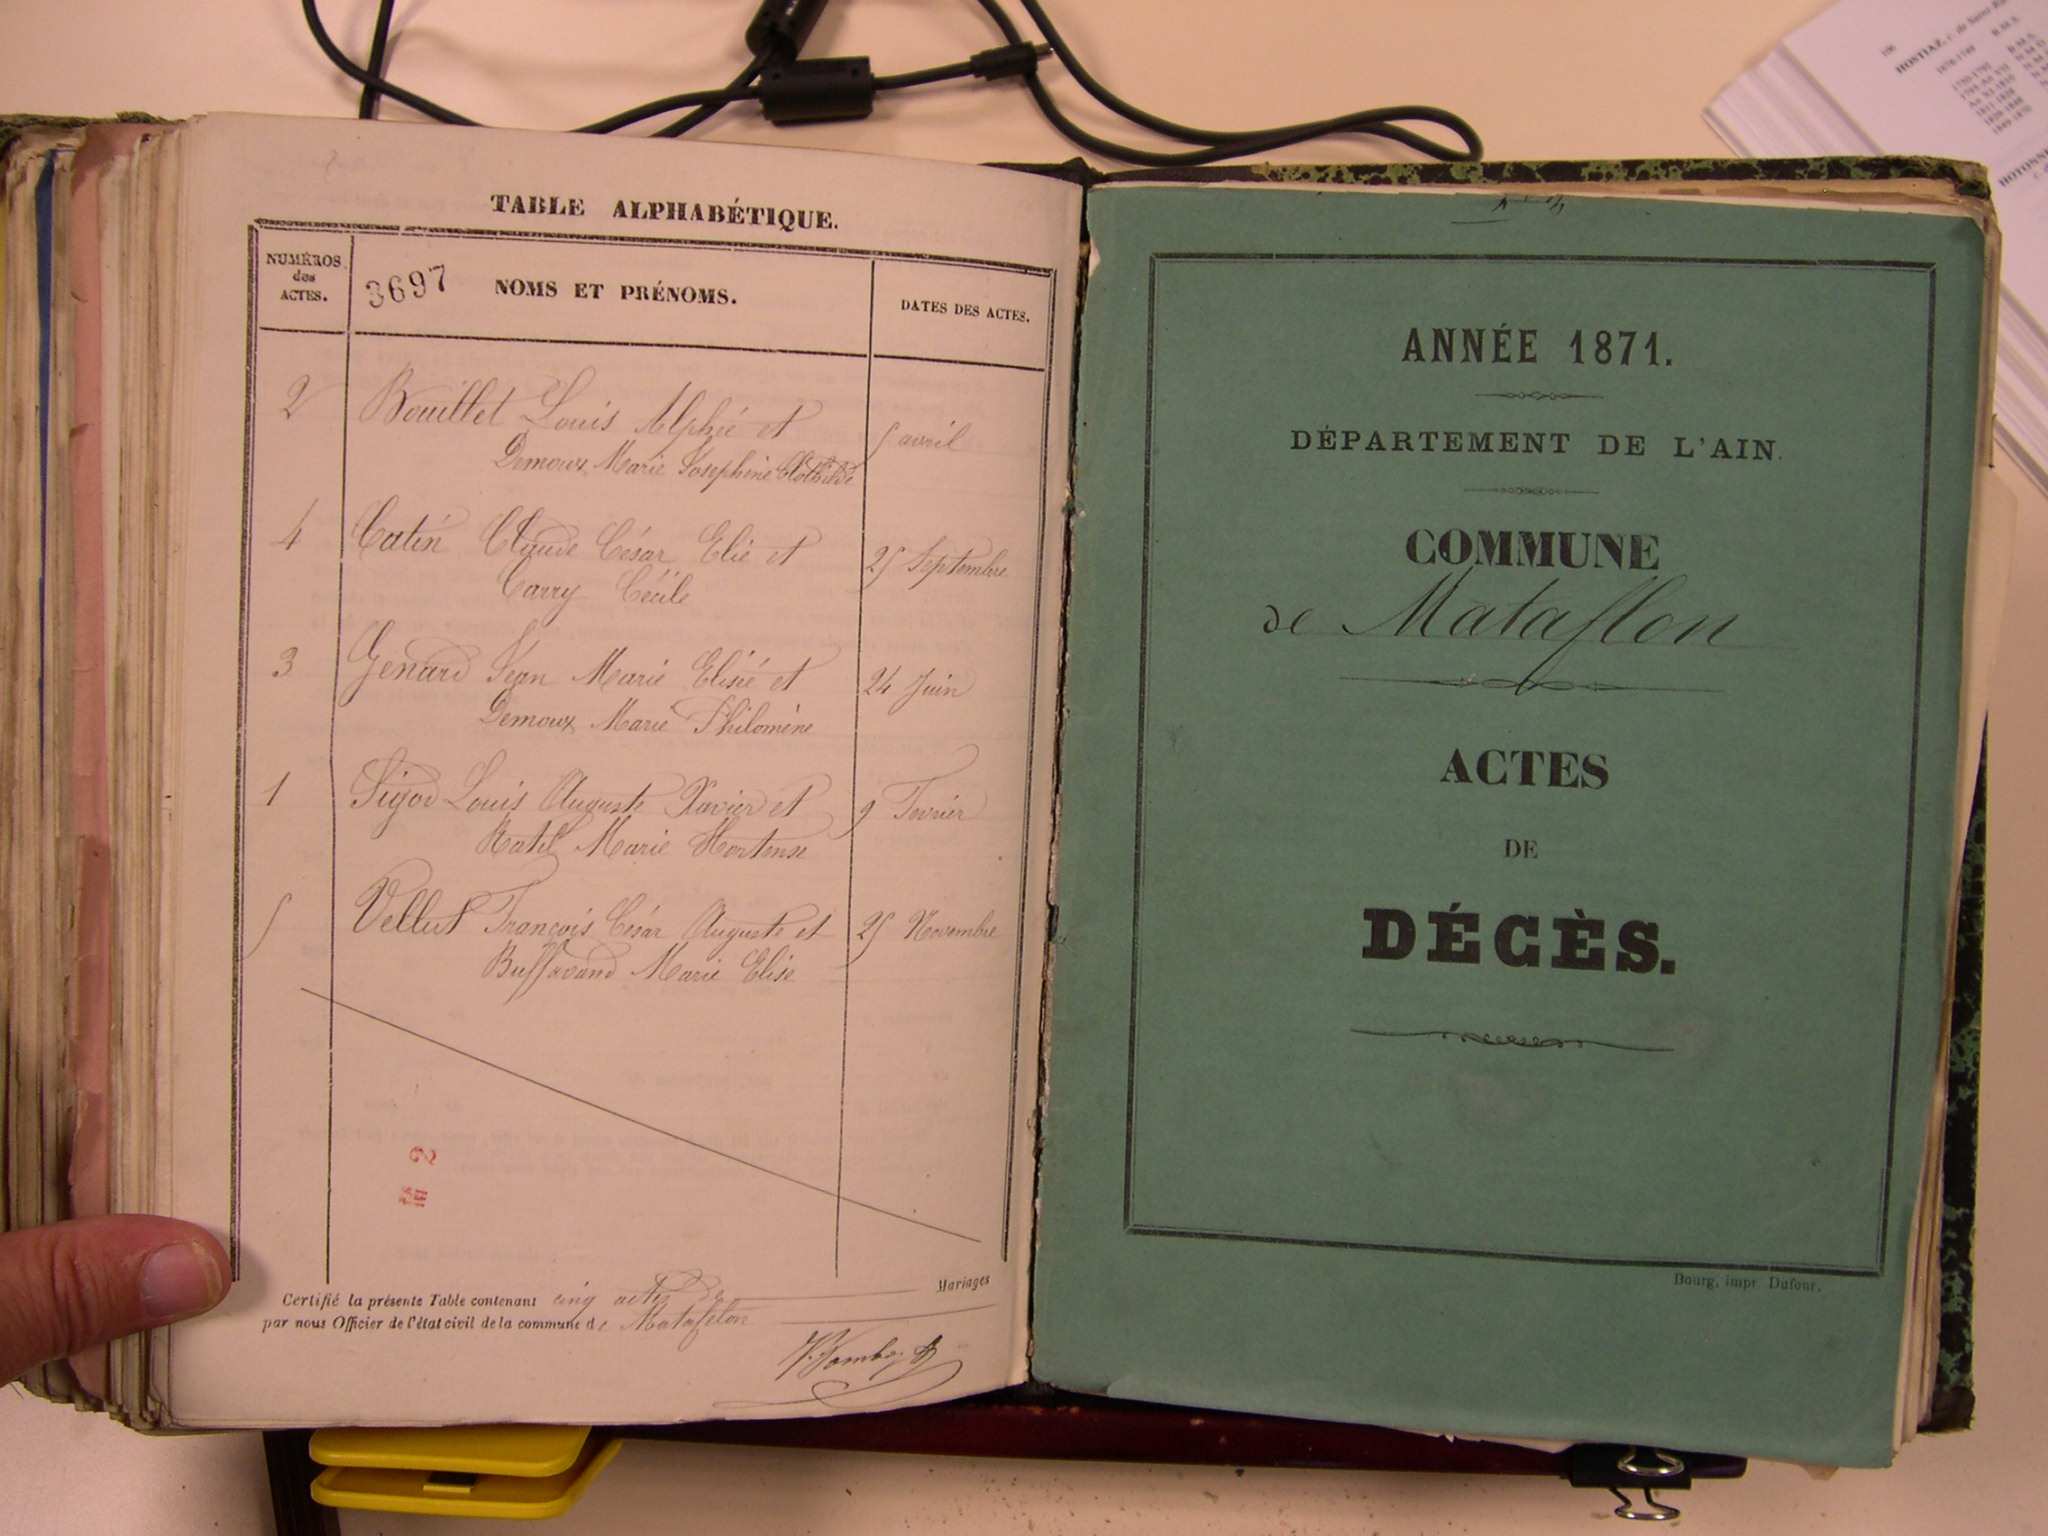 TABLE ALPHABÉTIQUE.
NUMÉROS
des
ACTES.
3697
NOMS ET PRÉNOMS.
DATES DES ACTES.
2 Bouillet Louis Alphé et 5 avril
Demoux Marie Joséphine Clothilde
4 Catin Claude César Elie et 25 Septembre
Carry Cécile
3 Genard Jéan Marie Elisée et 24 Juin
Demoux Marie Philomène
1 Sigod Louis Auguste Xavier et 9 Fevrier
Marie Hortense
5 Vellut François César Auguste et 25 Novembre
Buffavand Marie Elise
Certifié la présente Table contenant cinq actes de Mariages
par nous Officier de l'état civil de la commune de Matafelon
ANNÉE 1871.
DÉPARTEMENT DE L'AIN.
COMMUNE
de Mataflon
ACTES
DE
DÉCÈS.
Bourg, impr. Dufour.
106
HOSTIAZ, c. de
B.M.S.